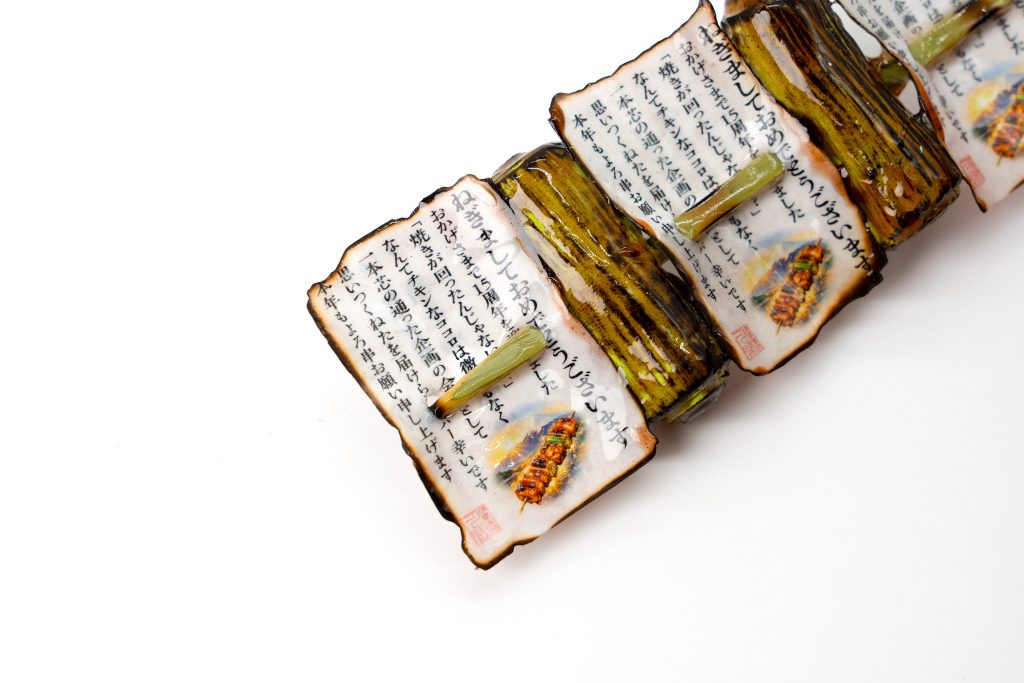 ねぎましておめでとうございます
おかげさまで15周年を ました
「焼きが回ったんじゃな 」
なんてチキンなココロは微 もなく
一本芯の通った企画の会 として
思いつくねたを届けら バー幸いです
本年もよろ串お願い申し上げます
ねぎましておめでとうございます
おかげさまで15周年 ました
「焼きが回ったんじゃな 」
なんてチキンなココロは もなく
一本芯の通った企画の として
思いつくねたを届け バー幸いです
本年もよろ串お願い申し上げます
ました
なく
して